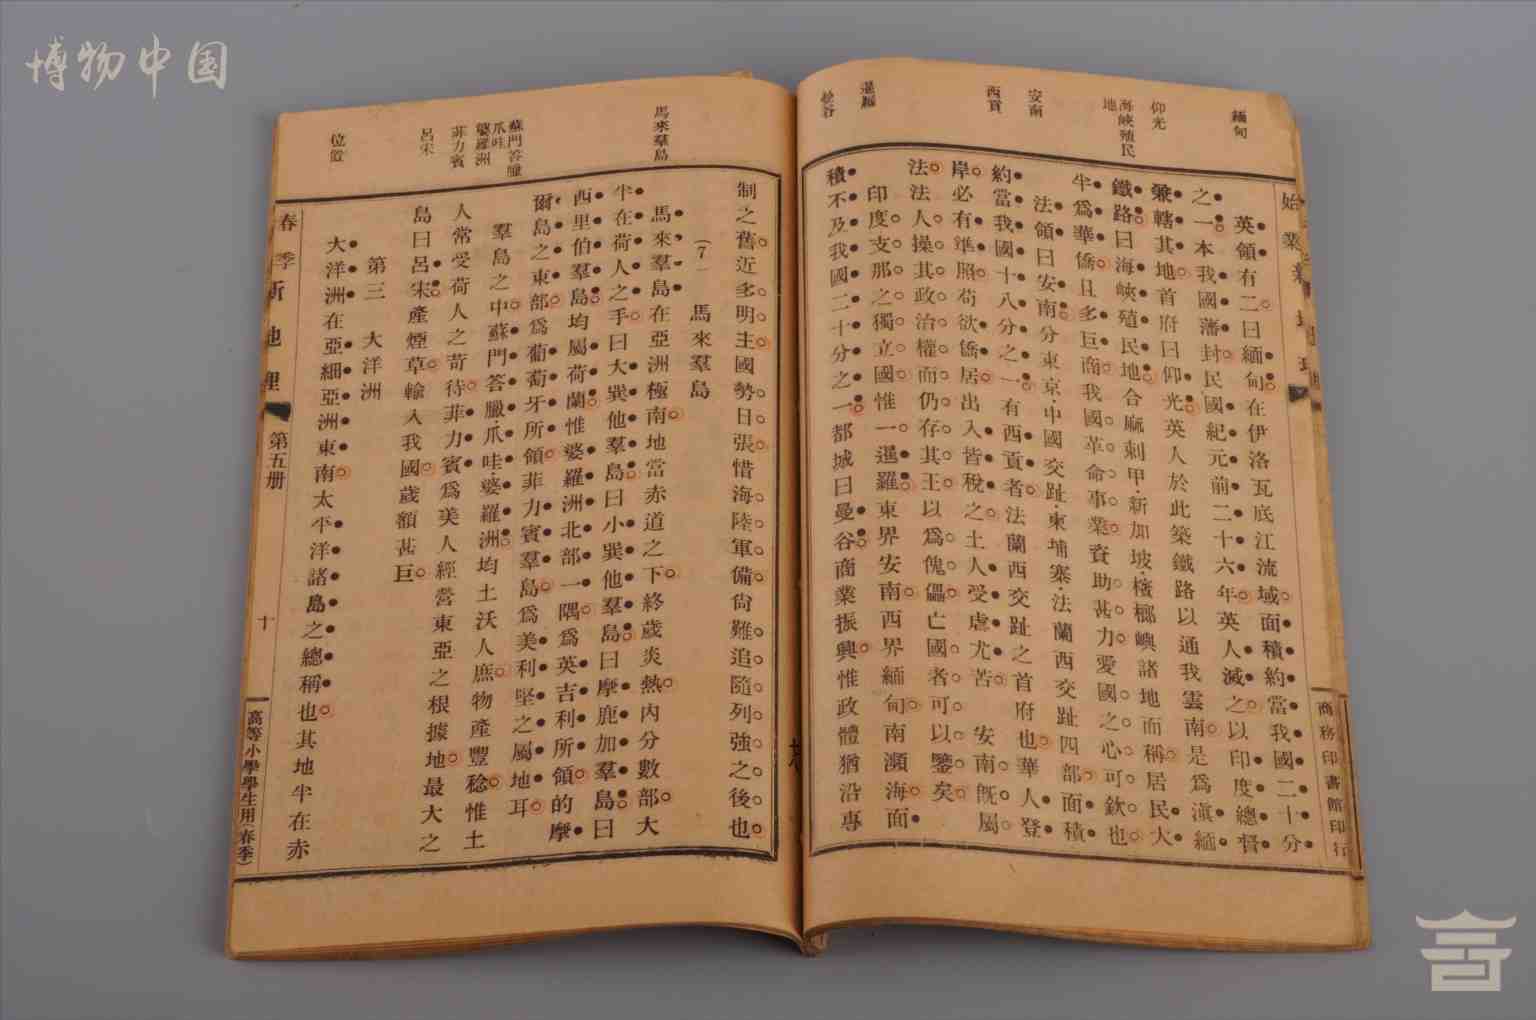 博物中国
緬甸
仰光
海峽殖民地
安南
西貢
暹羅
曼谷
英領有二曰緬甸在伊洛瓦底江流域面積約當我國二十分
之一本我國藩封民國紀元前二十六年英人滅之以印度總督
兼轄其地首府曰仰光英人於此築鐵路以通我雲南是爲滇緬
鐵路曰海峽殖民地合麻剌甲新加坡檳榔嶼諸地而稱居民大
半爲華僑且多巨商我國革命事業資助甚力愛國之心可欽也
法領曰安南分東京中國交趾柬埔寨法蘭西交趾四部面積
約當我國十八分之一有西貢者法蘭西交趾之首府也華人登
岸必有準照苟欲僑居出入皆稅之土人受虐尤苦 安南既屬
法法人操其政治權而仍存其王以爲傀儡亡國者可以鑒矣
印度支那之獨立國惟一暹羅東界安南西界緬甸南瀕海面
積不及我國二十分之一都城曰曼谷商業振興惟政體猶沿專
商務印書館印行
馬來羣島
蘇門答臘
爪哇
婆羅洲
菲力賓
呂宋
位置
制之舊近多明主國勢日張惜海陸軍備尙難追隨列強之後也
(7) 馬來羣島
馬來羣島在亞洲極南地當赤道之下終歲炎熱內分數部大
半在荷人之手曰大巽他羣島曰小巽他羣島曰摩鹿加羣島曰
西里伯羣島均屬荷蘭惟婆羅洲北部一隅爲英吉利所領的摩
爾島之東部爲葡萄牙所領菲力賓羣島爲美利堅之屬地耳
羣島之中蘇門答臘爪哇婆羅洲均土沃人庶物產豐稔惟土
人常受荷人之苛待菲力賓爲美人經營東亞之根據地最大之
島曰呂宋產煙草輸入我國歲額甚巨
第三 大洋洲
大洋洲在亞細亞洲東南太平洋諸島之總稱也其地半在赤
春季新地理 第五册 十 高等小學學生用(春季)